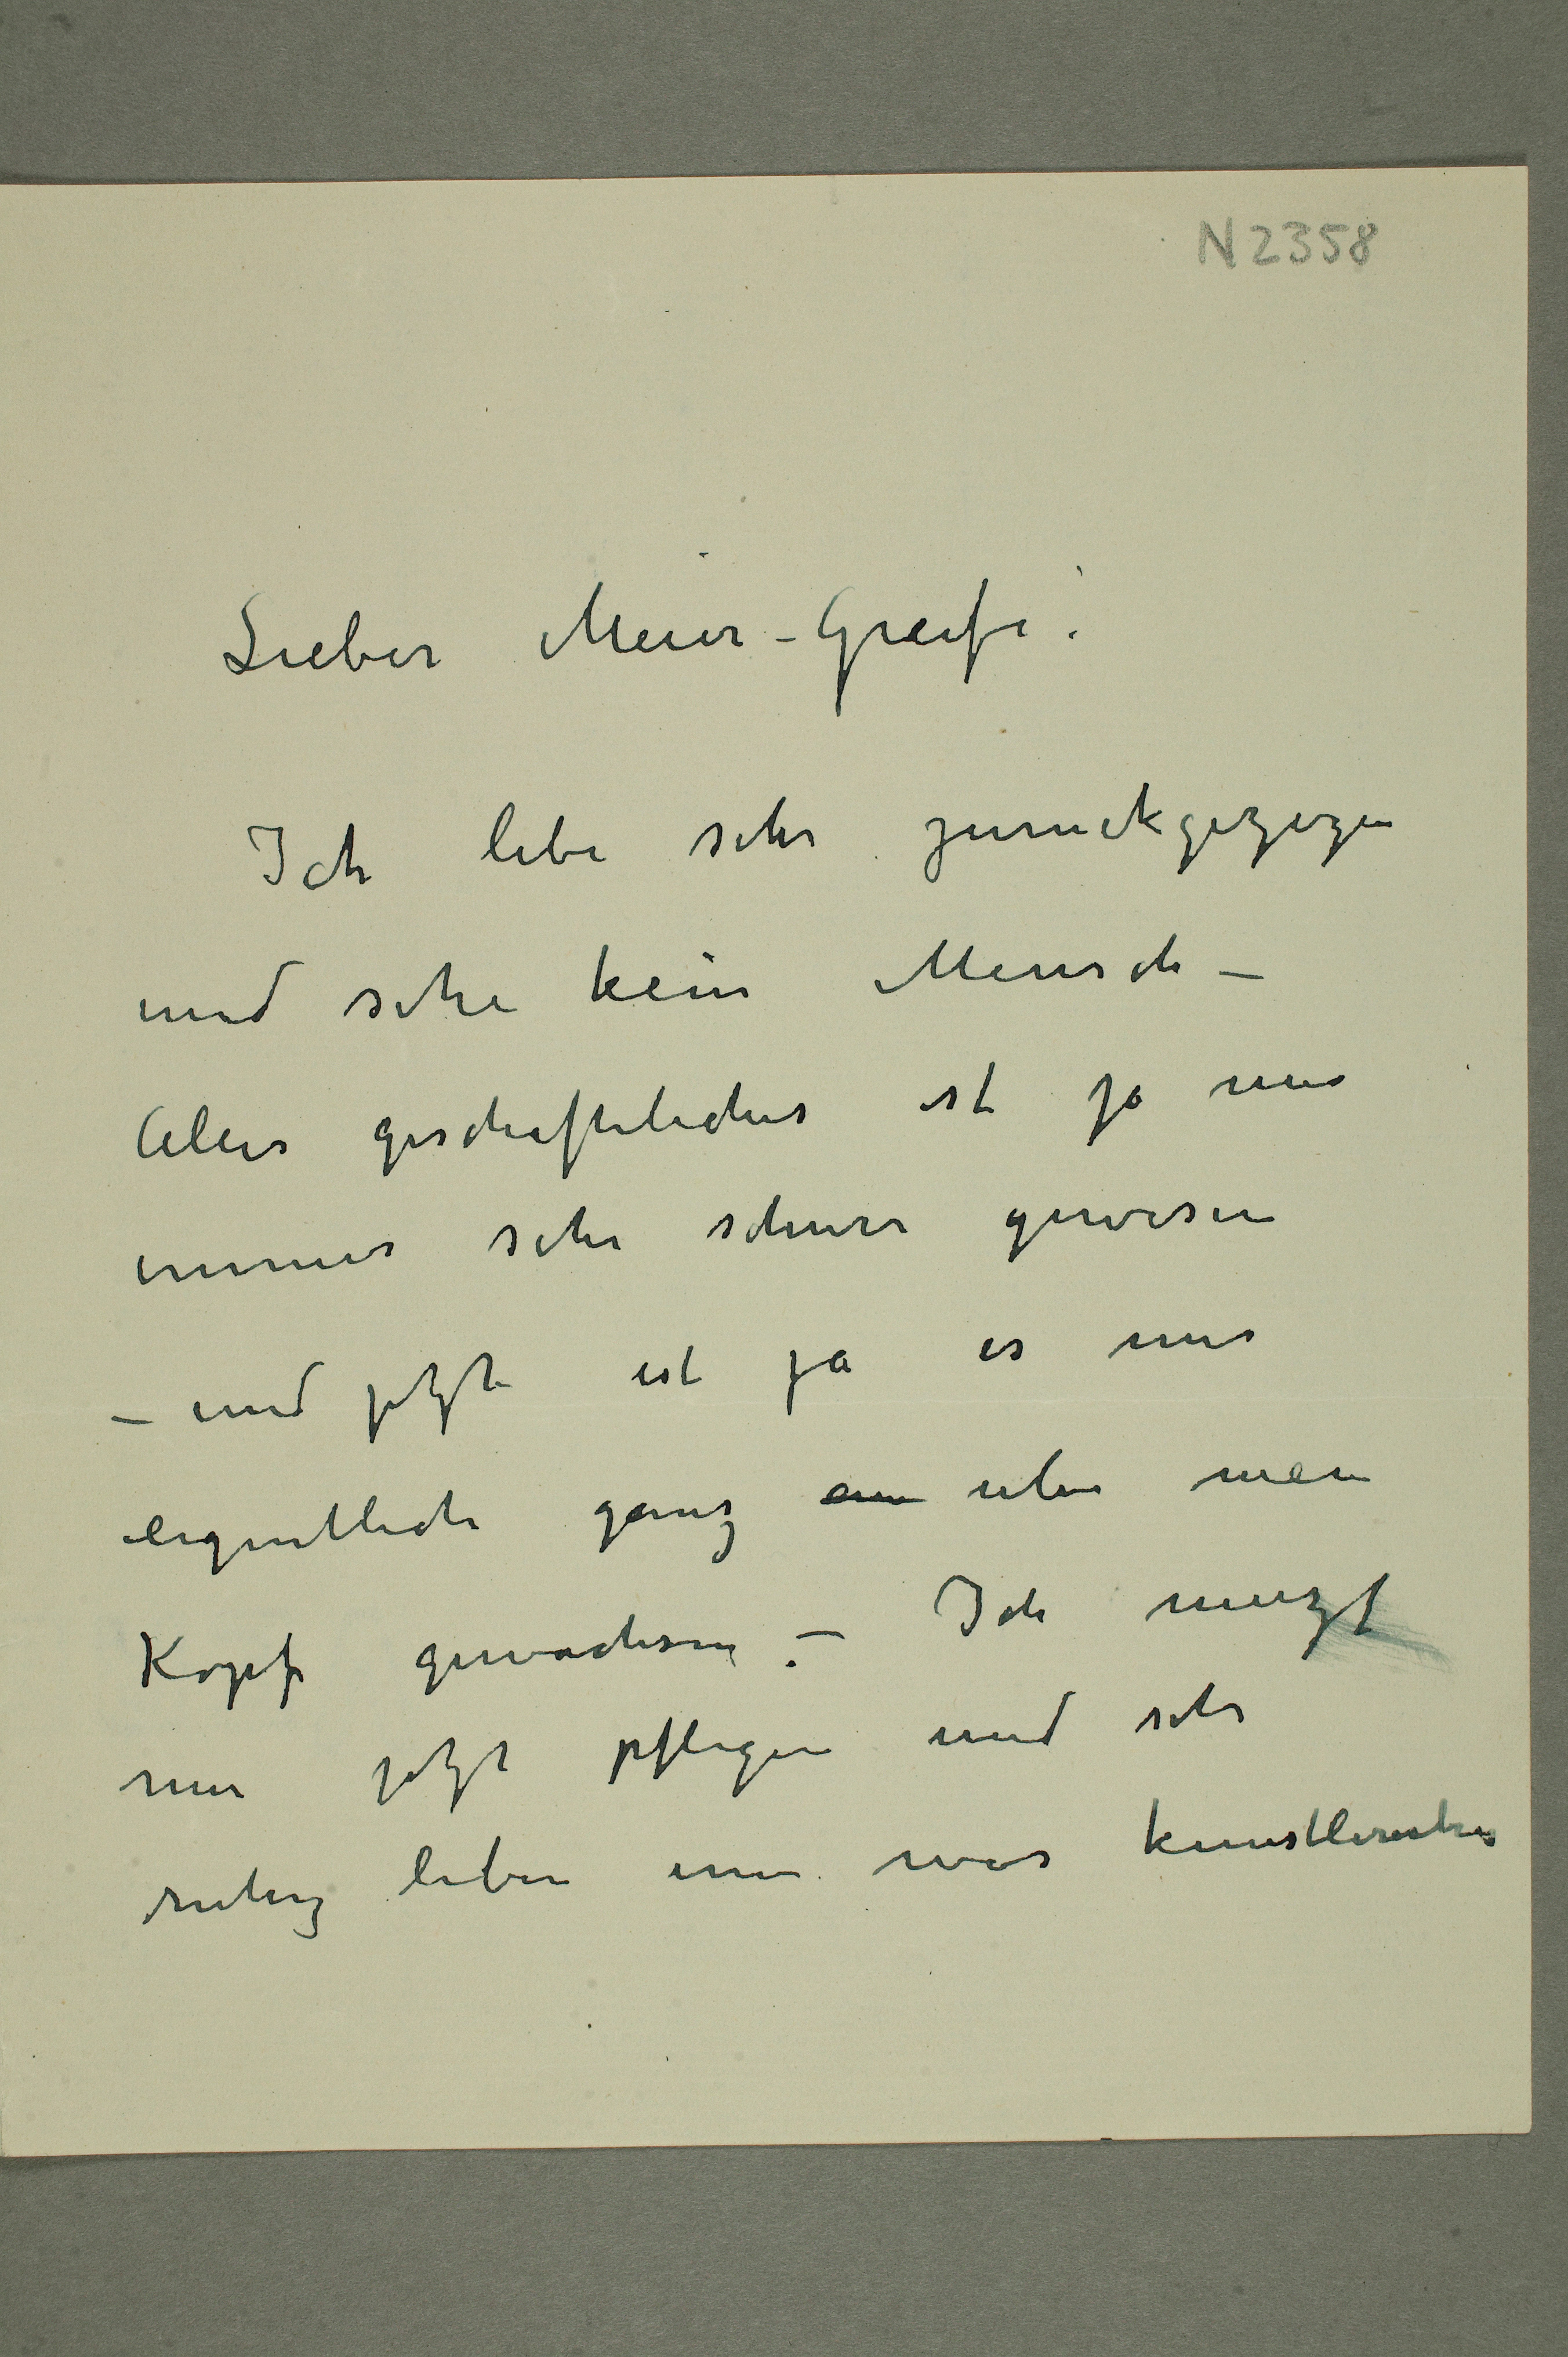 N 2358
Lieber Meier-Graefe!
Ich lebe sehr zurückgezogen
und sehe kein Mensch –
Alles geschäftliches ist ja mir
immer sehr schwer gewesen
– und jetzt ist ja es mir
eigentlich ganz über mein
Kopf gewachsen. – Ich muzt
mir jetzt pflegen und sehr
ruhig leben um was künstlerisches